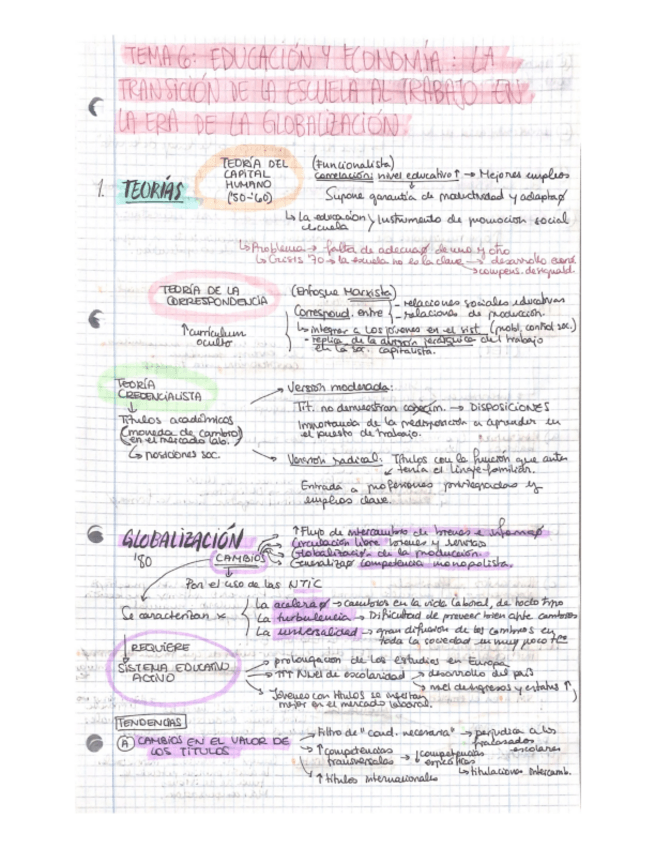 TEMA 6: EDUCACIÓN Y ECONOMÍA: LA
TRANSICIÓN DE LA ESCUELA AL TRABAJO EN
LA ERA DE LA GLOBALIZACIÓN.
1. TEORÍAS
TEORÍA DEL
CAPITAL
HUMANO
('50-'60)
(Funcionalista)
correlación: nivel educativo ↑ → Mejores empleos
Supone garantía de productividad y adaptaØ
↳ La educación > Instrumento de promoción social
escuela
↳ Problema → falta de adecuaØ de uno y otro
↳ Crisis 70 → la escuela no es la clave → desarrollo
→ compens. desiguald.
TEORÍA DE LA
CORRESPONDENCIA
↑ currículum
oculto
(Enfoque Marxista)
Correspond. entre - relaciones sociales educativas
- relaciones de producción.
↳ integrar a los jóvenes en el sist. (mobl. control soc.)
- réplica de la división jerárquica del trabajo
en la soc. capitalista.
TEORÍA
CREDENCIALISTA
↓
Títulos académicos
(moneda de cambio)
en el mercado lab.
↳ posiciones soc.
→ Versión moderada:
Tít. no demuestran conocim. → DISPOSICIONES
Importancia de la predisposición a aprender en
el puesto de trabajo.
→ Versión radical: Títulos con la función que antes
tenía el linaje familiar.
Entrada a profesiones privilegiadas y
empleos clave.
GLOBALIZACIÓN
'80
CAMBIOS
↑ Flujo de intercambio de bienes e informaØ
Circulación libre bienes y servicios
Globalización de la producción.
GeneralizaØ competencia monopolista.
Por el uso de las NTIC
Se caracterizan x
La aceleraØ → cambios en la vida laboral, de todo tipo
La turbulencia → Dificultad de prever bien ante cambios
La universalidad → gran difusión de los cambios en
toda la sociedad en muy poco
REQUIERE
SISTEMA EDUCATIVO
ACTIVO
→ prolongación de los estudios en Europa
→ ↑↑ Nivel de escolaridad → desarrollo del país
→ nivel de ingresos y estatus ↑
→ Jóvenes con títulos se insertan
mejor en el mercado laboral.
TENDENCIAS
A CAMBIOS EN EL VALOR DE
LOS TÍTULOS
→ Filtro de "cond. necesaria" → perjudica a los
fracasados
escolares
→ ↑ competencias
transversales → ↓ competencias
específicas
→ ↑ títulos internacionales
↳ titulaciones intercamb.